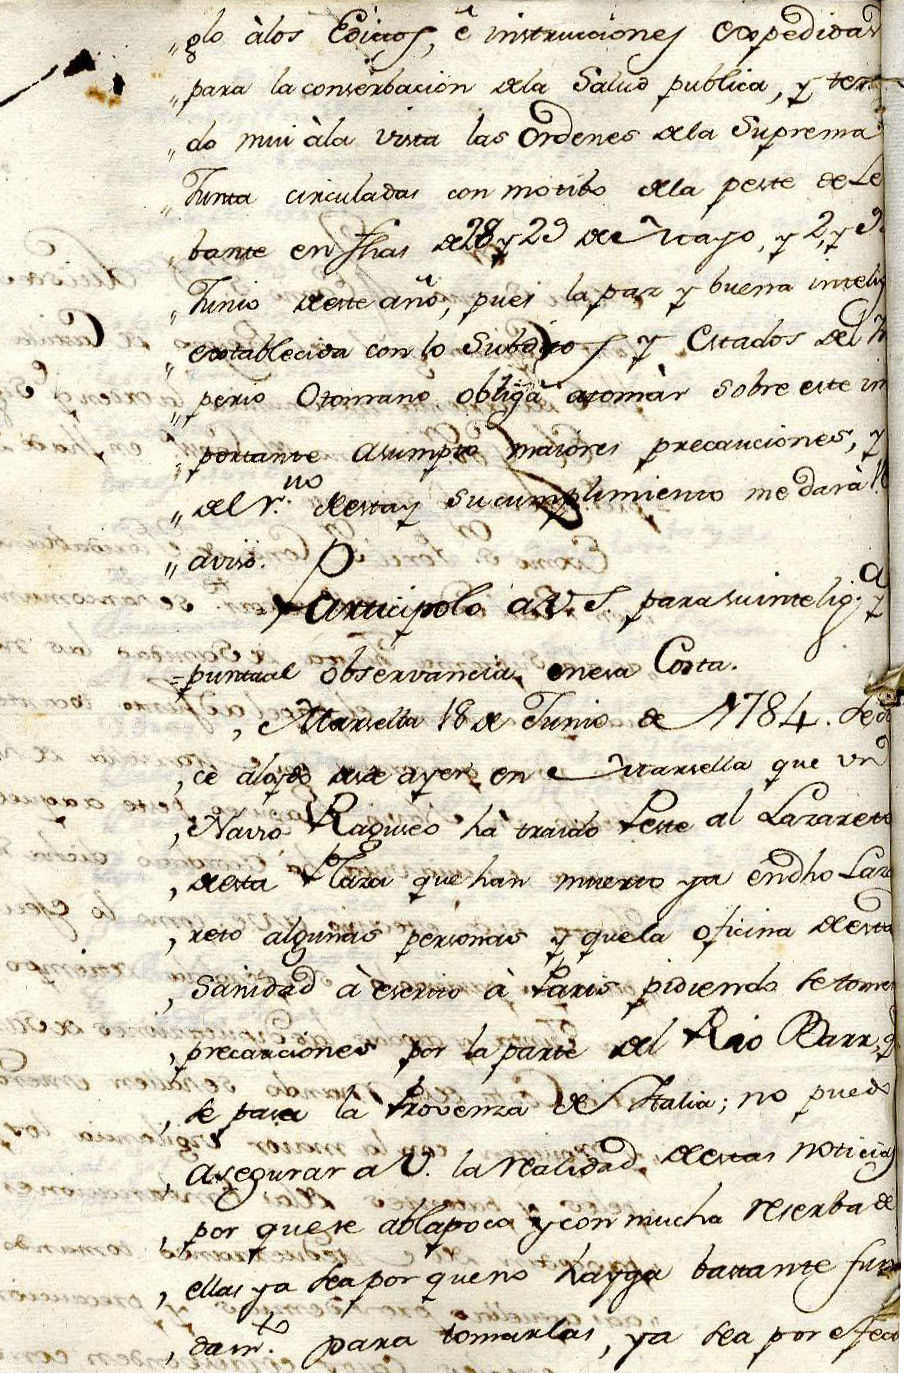 „ glo àlos Edictos, è instrucciones expedidas
„ para la conserbacion dela Salud publica, y ten
„ do mui àla vista las Ordenes dela Suprema
„ Junta circuladas con motibo dela peste de Le
„ bante en fhas de 28 y 29 de Mayo, y 2, y 9
„ Junio deste año, pues la paz y buena intelig
„ establecida con lo Subditos y Estados del Im
„ perio Otomano obliga atomàr sobre este im
„ portante Asumpto maiores precauciones, y
„ del r.vo desta y sucumplimiento me darà V.
„ aviso.
Participolo aV.S. parasuintelig.a y
= puntual observancia enesa Costa.
, Marsella 18 de Junio de 1784. Sedi
, ce aloydo desde ayer en Marsella que un
, Navio Raguseo hà traido Peste al Lazareto
, desta Plaza que han muerto ya endho Laza
, reto algunas personas y quela oficina desta
, Sanidad à escrito à Paris pidiendo se tomen
, precauciones por la parte del Rio Barr, q
, se pasa la Provenza de Italia; no puedo
, Asegurar aV. la realidad destas noticias
, por quese ablapoco y con mucha reserba de
, ellas ya sea por queno hayga bastante fun
, dam.to para tomarlas, ya sea por efecto